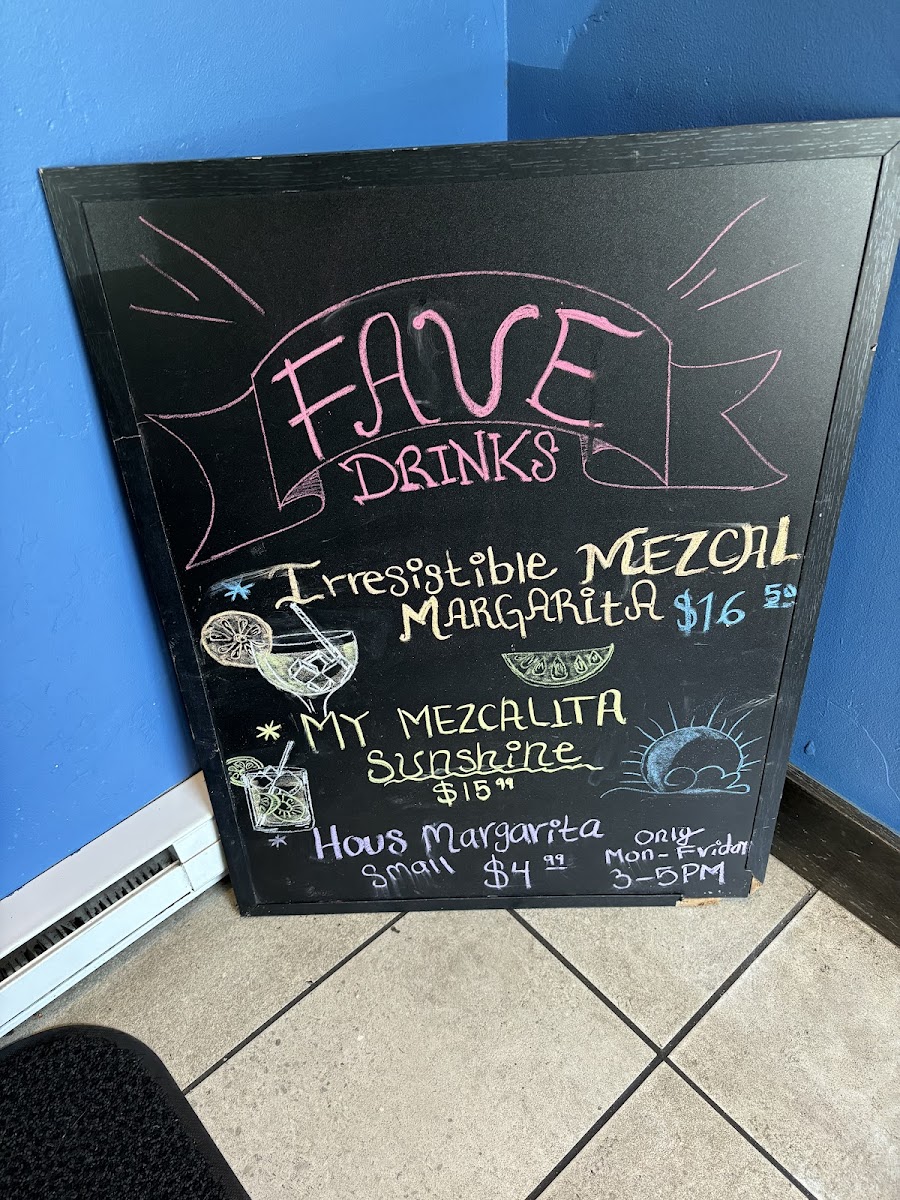 FAVE
DRINKS
* Irresistible MEZCAL
MARGARITA $16 50
* MY MEZCALITA
Sunshine
$15 99
* Hous Margarita
small $4 99
only
Mon-Friday
3-5PM